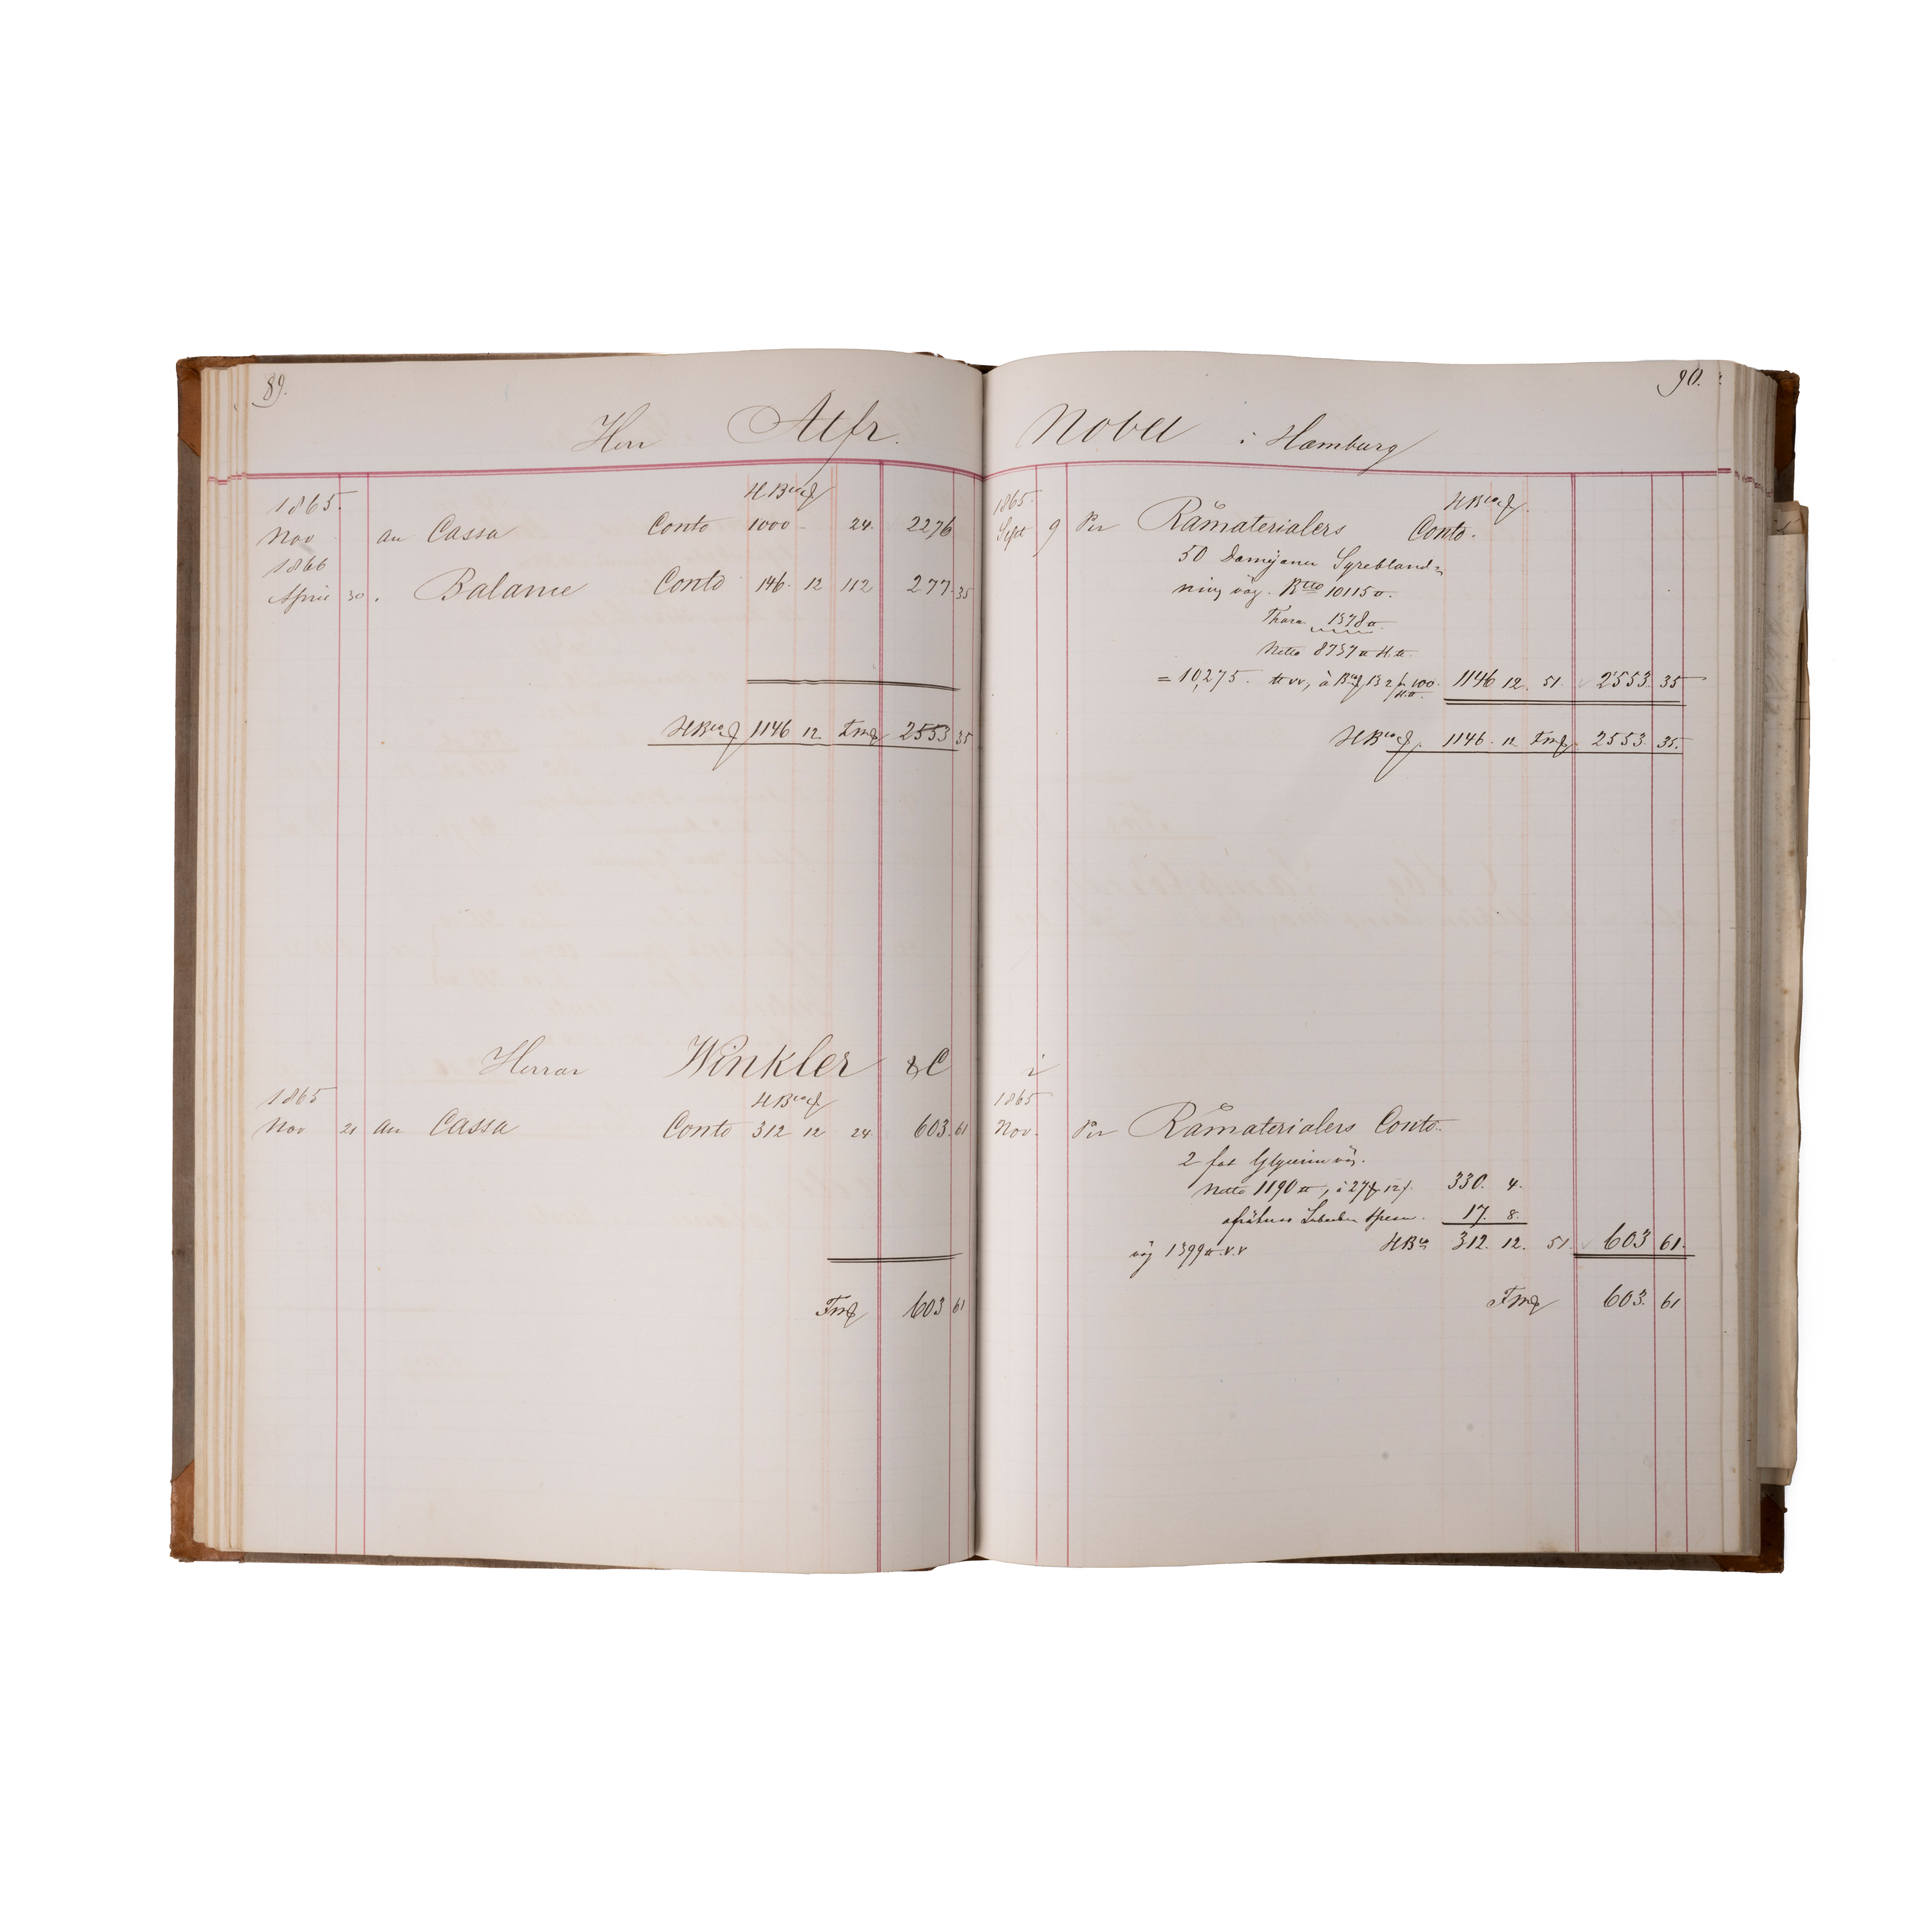 89.
Herr Alfr.
1865.
H Bco
Nov an Cassa Conto 1000 - 24. 2276
1866
April 30 . Balance Conto 146. 12 112 277. 35
H Bco 1146 12 2553 35
Herrar Winkler & C
1865
H Bco
Nov 21 an Cassa Conto 312 12 24 603. 61
603 61
90.
Nobel i Hamburg
1865.
H Bco
Sept 9 Per Råmaterialers Conto.
50 Damejaner Syrebland=
ning väg. Btto 10115
Thara 1378
Netto 8737
= 10,275. à 13 100. 1146 12. 51. 2553. 35
H Bco 1146. 12 2553. 35.
i
1865
Nov. Per Råmaterialers Conto.
2 fat Glycerin väg.
Netto 1190 , à 27 12 330. 4.
17. 8.
väg 1399 v.v H Bco 312. 12. 51. 603 61.
603. 61